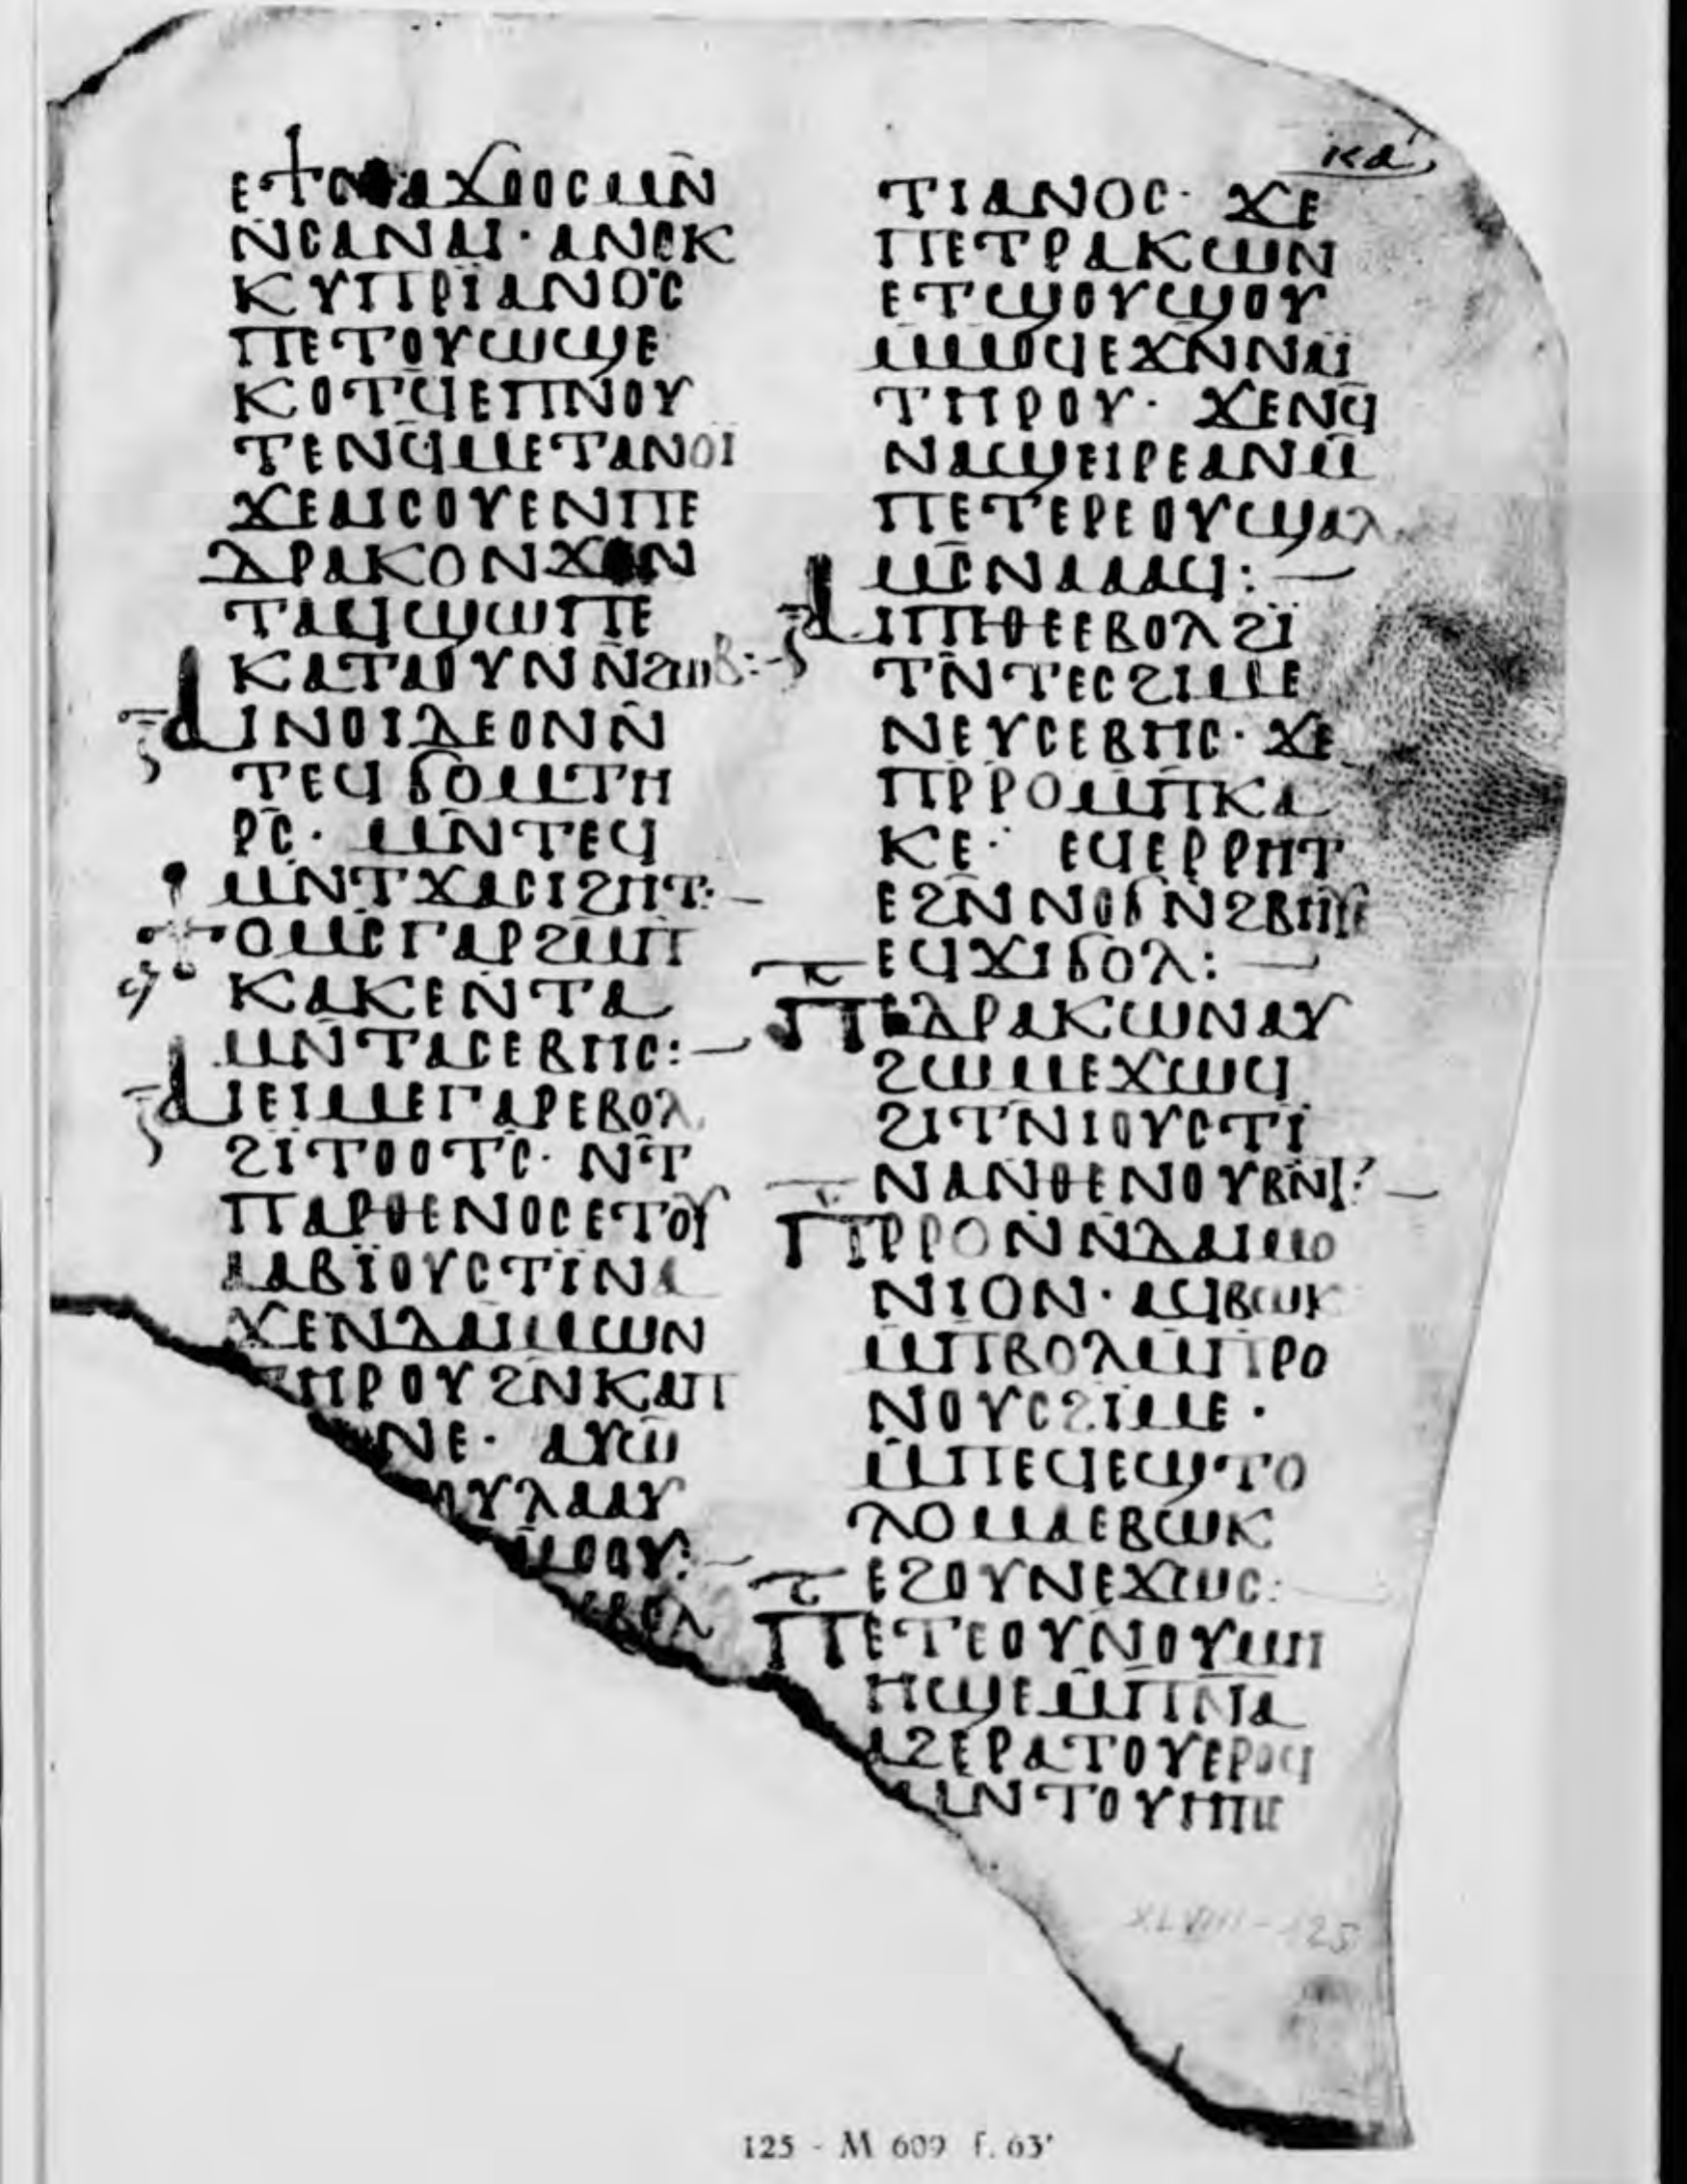 ⲕⲁ
ⲉϯⲛⲁϫⲟⲟⲥⲙⲛ̄
ⲛ̄ⲥⲁⲛⲁⲓ· ⲁⲛⲟⲕ
ⲕⲩⲡⲣⲓⲁⲛⲟⲥ
ⲡⲉⲧⲟⲩⲱϣⲉ
ⲕⲟⲧϥ̄ⲉⲡⲛⲟⲩ
ⲧⲉⲛϥ̄ⲙⲉⲧⲁⲛⲟⲓ
ϫⲉⲁⲓⲥⲟⲩⲉⲛⲡⲉ
ⲇⲣⲁⲕⲟⲛϫⲛ
ⲧⲁϥϣⲱⲡⲉ
ⲕⲁⲧⲁⲟⲩⲛⲛ̄ϩⲱⲃ:-
ⲁⲓⲛⲟⲓⲇⲉⲟⲛⲛ̄
ⲧⲉϥϭⲟⲙⲧⲏ
ⲣⲥ̄· ⲙⲛ̄ⲧⲉϥ
ⲙⲛ̄ⲧϫⲁⲥⲓϩⲏⲧ:-
ⲧⲟⲙⲥⲅⲁⲣϩⲙ̄ⲡ
ⲕⲁⲕⲉⲛ̄ⲧⲁ
ⲙⲛ̄ⲧⲁⲥⲉⲃⲏⲥ:-
ⲁⲓⲉⲓⲙⲉⲅⲁⲣⲉⲃⲟⲗ
ϩⲓⲧⲟⲟⲧⲥ̄· ⲛ̄ⲧ
ⲡⲁⲣⲑⲉⲛⲟⲥⲉⲧⲟⲩ
ⲁⲁⲃⲓ̈ⲟⲩⲥⲧⲓ̈ⲛⲁ
ϫⲉⲛⲇⲁⲓⲙⲱⲛ
ⲧⲏⲣⲟⲩϩⲛ̄ⲕⲁⲡ
ⲛⲉ· ⲁⲩⲱ
ⲟⲩⲗⲁⲁⲩ
ⲙⲙⲟⲟⲩ:-
ⲉⲃⲟⲗ
ⲧⲓⲁⲛⲟⲥ· ϫⲉ
ⲡⲉⲧⲣⲁⲕⲱⲛ
ⲉⲧϣⲟⲩϣⲟⲩ
ⲙ̄ⲙⲟϥⲉϫⲛ̄ⲛⲁⲓ̈
ⲧⲏⲣⲟⲩ· ϫⲉⲛϥ̄
ⲛⲁϣⲉⲓⲣⲉⲁⲛⲙ̄
ⲡⲉⲧⲉⲣⲉⲟⲩϣⲁⲗ
ⲙⲉⲛⲁⲁⲁϥ:-
ⲁⲓⲡⲓⲑⲉⲉⲃⲟⲗϩⲓ̈
ⲧⲛ̄ⲧⲉⲥϩⲓⲙⲉ
ⲛⲉⲩⲥⲉⲃⲏⲥ· ϫⲉ
ⲡⲣ̄ⲣⲟⲙ̄ⲡⲕⲁ
ⲕⲉ· ⲉϥⲉⲣⲣⲏⲧ
ⲉϩⲛ̄ⲛⲟϭⲛ̄ϩⲃⲏⲩⲉ
ⲉϥϫⲓϭⲟⲗ:-
ⲡⲉⲇⲣⲁⲕⲱⲛⲁⲩ
ϩⲱⲙⲉϫⲱϥ
ϩⲓⲧⲛ̄ⲓⲟⲩⲥⲧⲓ̈
ⲛⲁⲛⲑⲉⲛⲟⲩⲃⲛ̄ⲓ:-
ⲡⲣ̄ⲣⲟⲛ̄ⲛⲇⲁⲓⲙⲟ
ⲛⲓⲟⲛ· ⲁϥⲃⲱⲕ
ⲙ̄ⲡⲃⲟⲗⲙ̄ⲡⲣⲟ
ⲛⲟⲩⲥϩⲓ̈ⲙⲉ·
ⲙ̄ⲡⲉϥⲉϣⲧⲟ
ⲗⲟⲙⲁⲉⲃⲱⲕ
ⲉϩⲟⲩⲛⲉϫⲱⲥ:-
ⲡⲉⲧⲉⲟⲩⲛ̄ⲟⲩⲙ
ⲏϣⲉⲙ̄ⲡⲛⲁ
ⲁϩⲉⲣⲁⲧⲟⲩⲉⲣⲟϥ
ⲙⲛ̄ⲧⲟⲩⲏⲡⲉ
XLVIII - 125
125 - M 609 f. 63ʳ